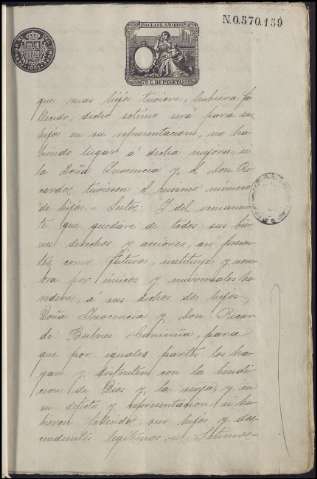 N.0.570.159
que mas hijos tuviere, hubiera fa-
llecido, dicho sera para sus
hijos en su representacion, no ha-
biendo lugar á dicha mejora, si
la Doña Inocencia y el don Ri-
cardo, tuviesen el mismo número
de hijos. Y del remanen-
te que quedare de todos sus bie-
nes derechos y acciones, asi presen-
tes como futuros, instituye y nom-
bra por únicos y universales he-
rederos, a sus dichos dos hijos,
Doña Inocencia y don Ricar-
do de para
que por iguales partes los ha-
yan y disfruten con la bendi-
cion de Dios y la suya y en
su defecto y representacion si hu-
bieran fallecido, sus hijos y des-
cendientes legitimos.